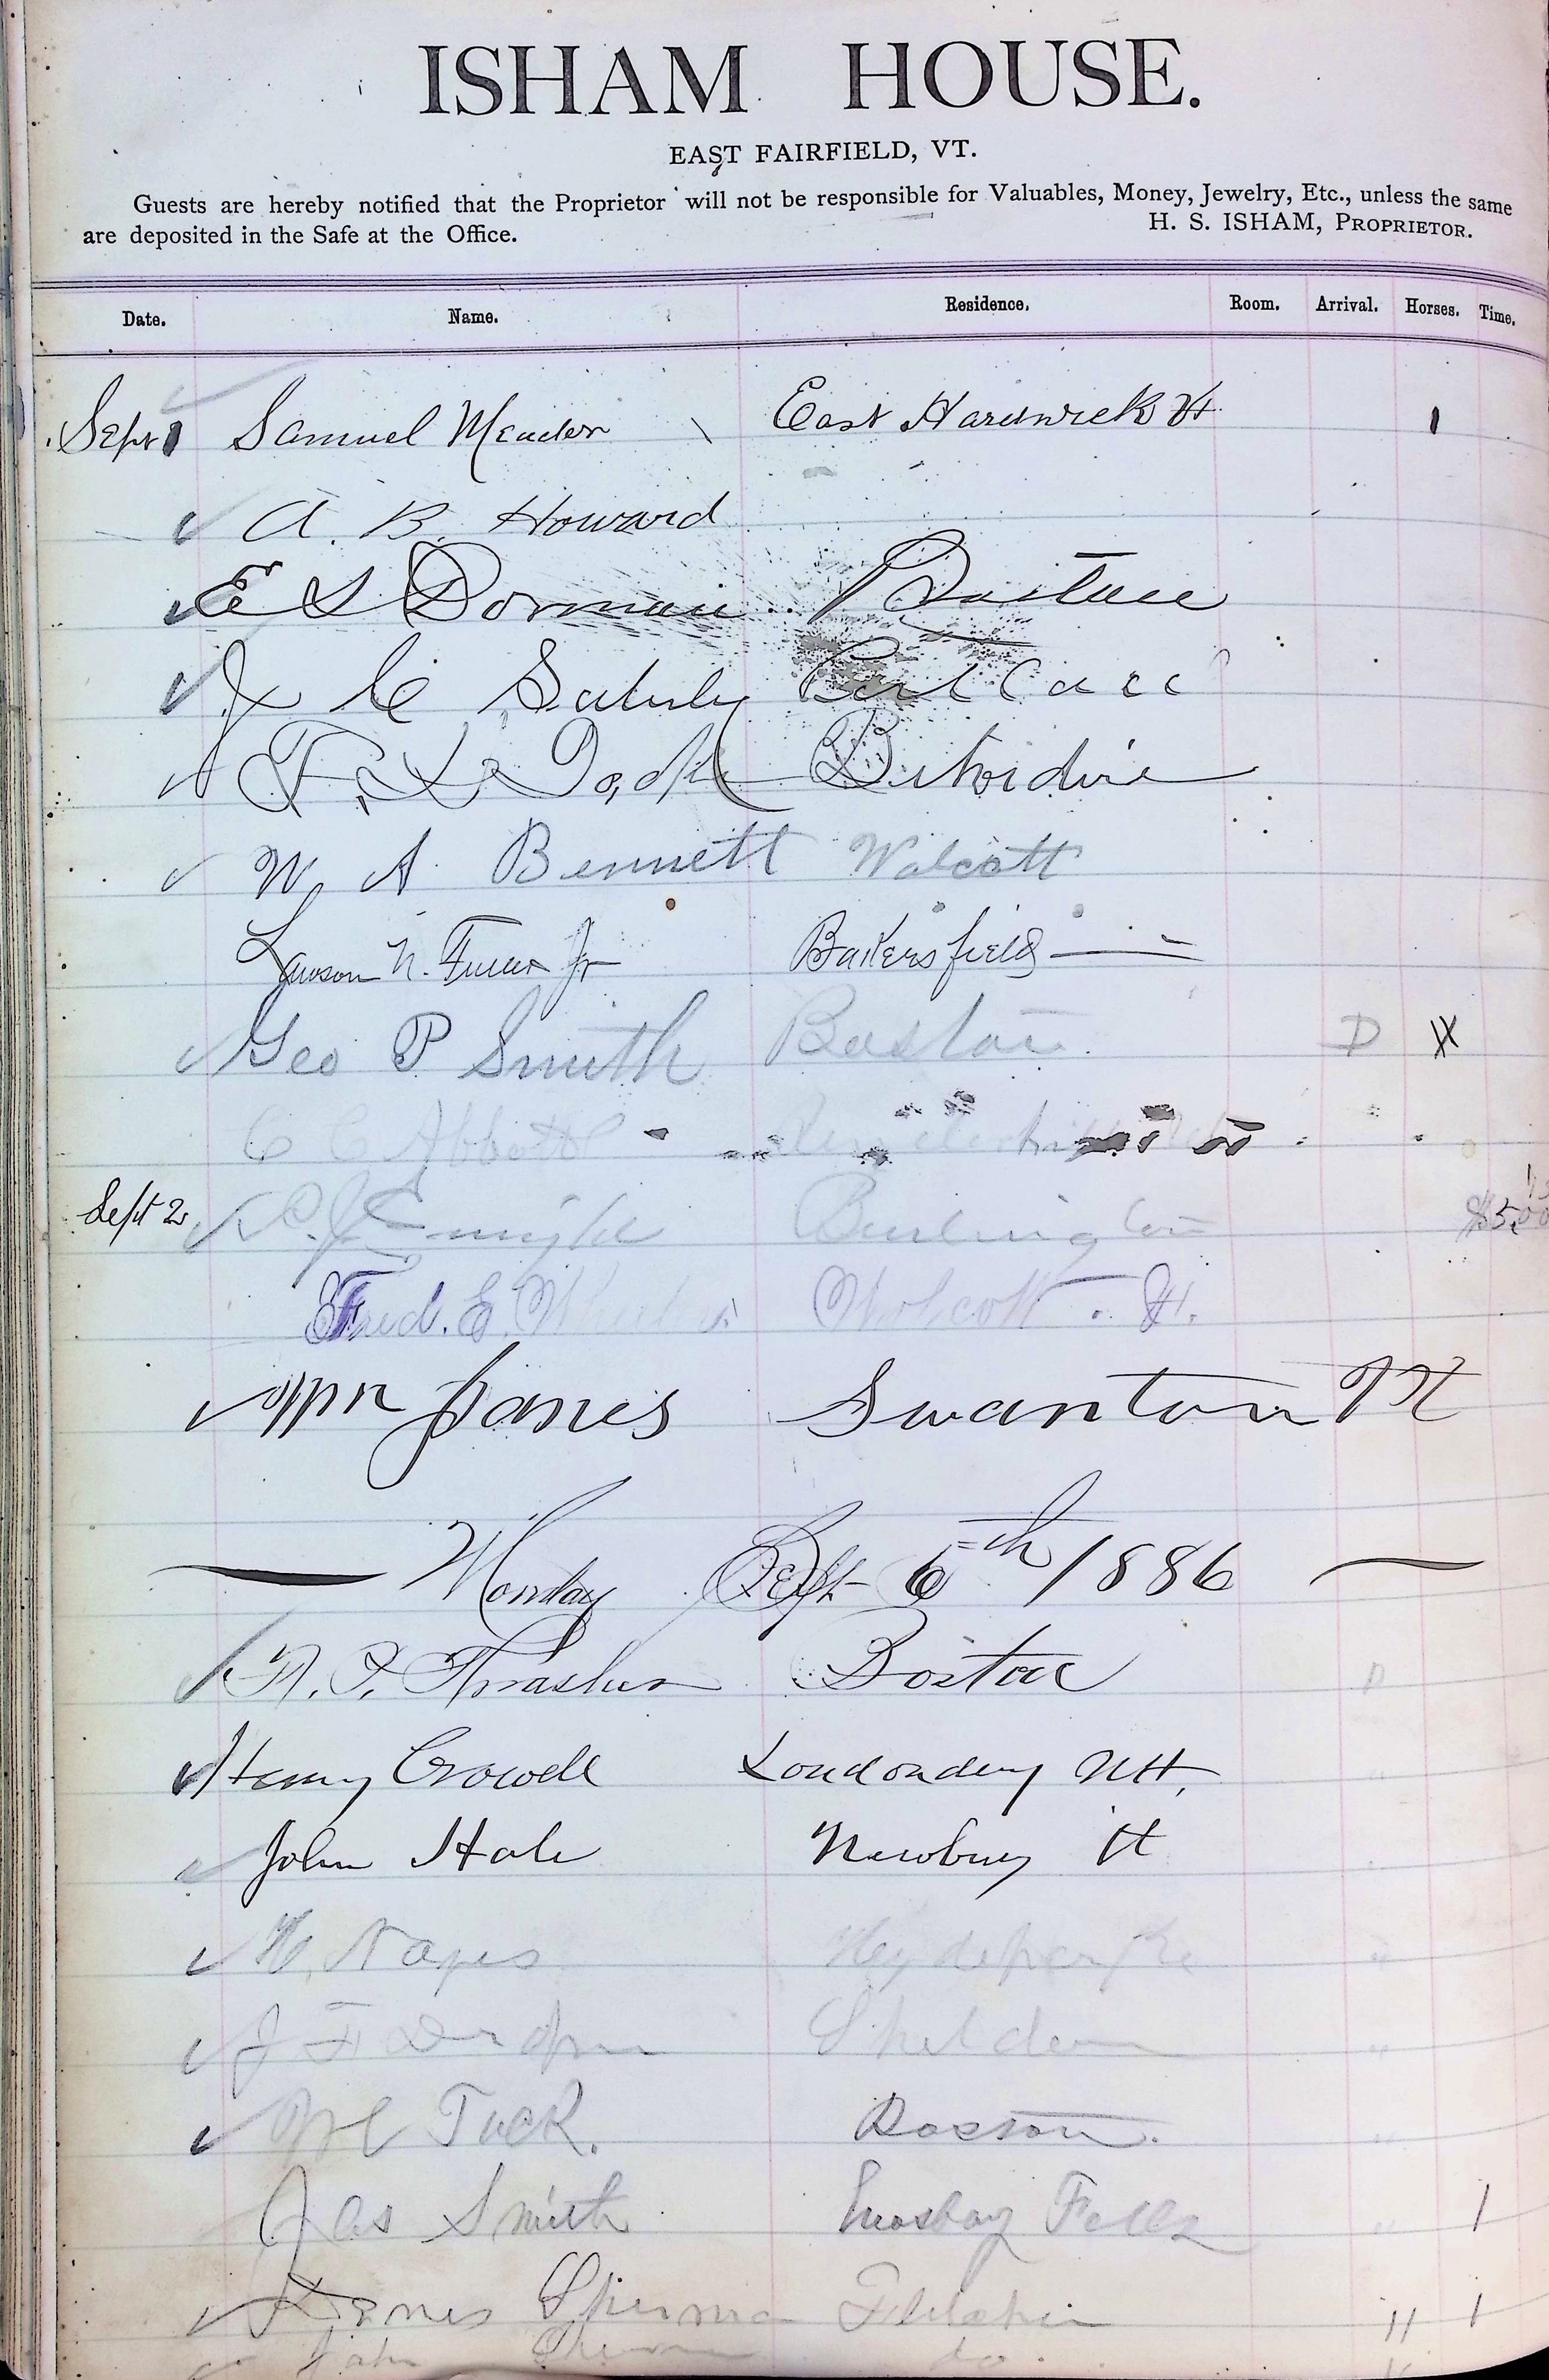 ISHAM HOUSE.
EAST FAIRFIELD, VT.
Guests are hereby notified that the Proprietor will not be responsible for Valuables, Money, Jewelry, Etc., unless the same
are deposited in the Safe at the Office.
H. S. ISHAM, PROPRIETOR.
Date. Name. Residence. Room. Arrival. Horses. Time.
Sept 1 Samuel Meader East Hardwick Vt 1
A. B. Howard
E S Dorman
J C
F.
W A Bennett Wolcott
Lawson N. Fuller Jr Bakersfield
Geo P Smith Boston. D
C C Abbott
Sept 2 Burlington $5.00
Fred. E. Wheeler Wolcott. Vt.
Wm Janes Swanton Vt
Monday Sept 6th 1886
Thrasher Boston D
Henry Crowell Londonderry NH.
John Hale Newbury Vt
H. Noyes Hydeparke "
J F Sheldon "
Tuck. Boston. "
Jas Smith Enosburg Falls " 1
James Sherman Fletcher " 1
John do